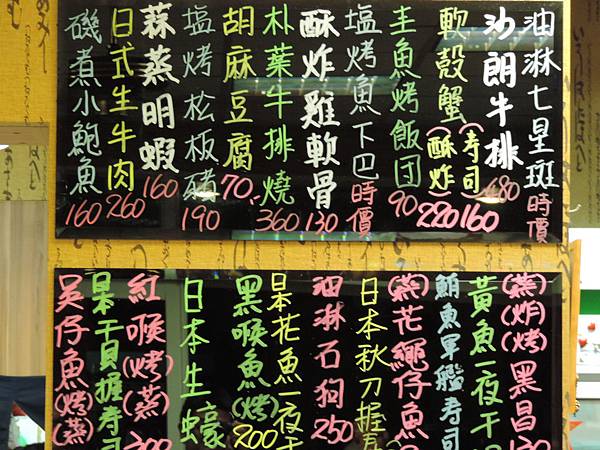 油淋七星斑時價
沙朗牛排480
軟殼蟹(壽司)160
(酥炸)220
圭魚烤飯団90
塩烤魚下巴時價
酥炸雞軟骨130
朴葉牛排燒360
胡麻豆腐70.
塩烤松板豬190
蒜蒸明蝦160
日式生牛肉260
磯煮小鮑魚160
(蒸)(炸)(烤)黑昌130
黃魚一夜干
鮪魚軍艦壽司
(蒸)花繩仔魚
日本秋刀握壽
油淋石狗250
日本花魚一夜干
黑喉魚(烤)200
日本生蠔
紅喉(烤)(蒸)300
日本干貝握壽司
吳仔魚(烤)(蒸)